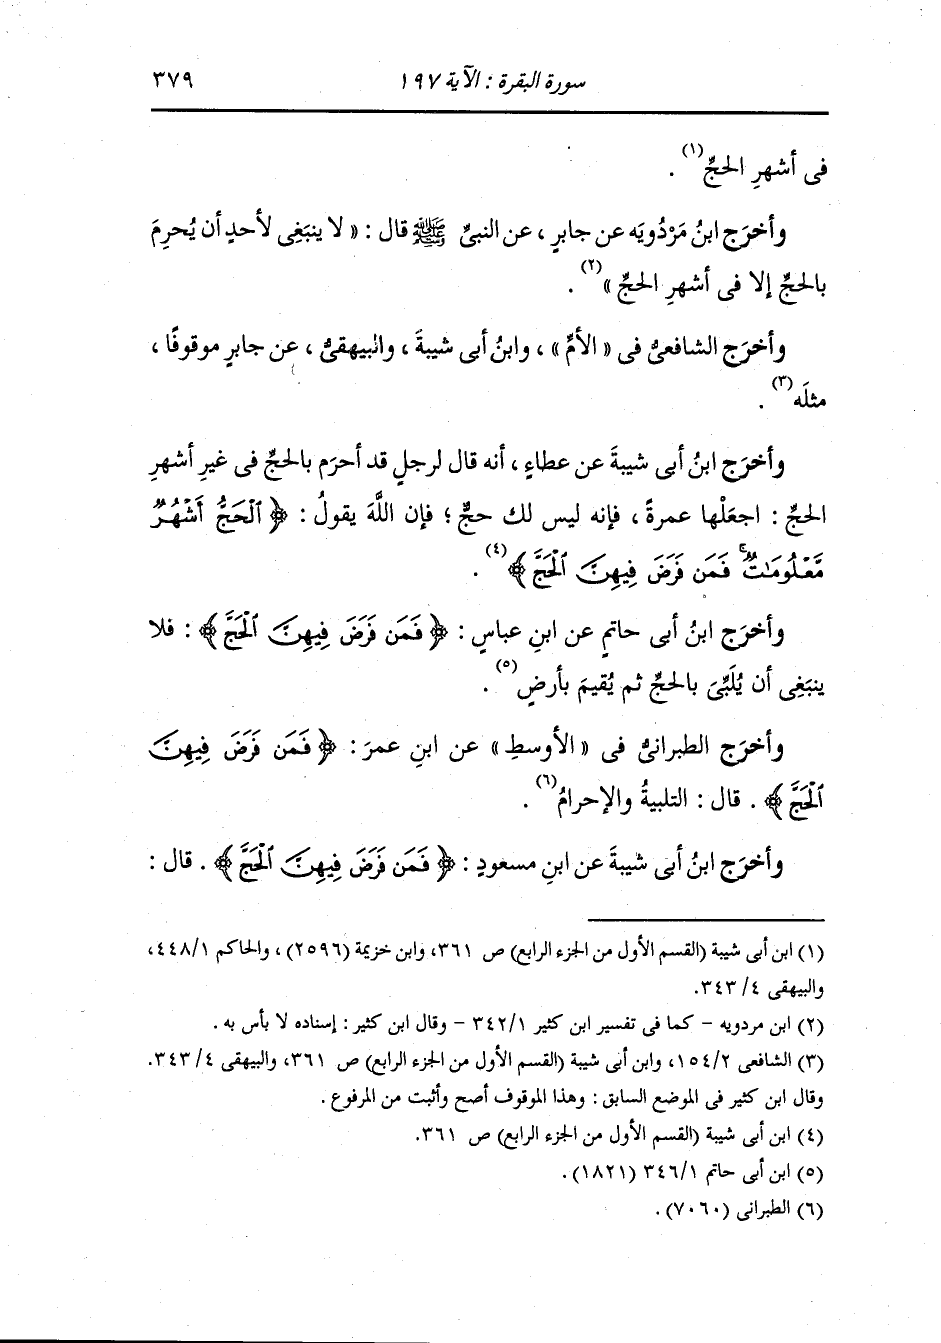 سورة البقرة : الآية ١٩٧ ٣٧٩
فى أشهرِ الحجِّ(١) .
وأخرَج ابنُ مَرْدُويَه عن جابرٍ ، عن النبىِّ ﷺ قال : « لا ينبَغِى لأحدٍ أن يُحرِمَ
بالحجِّ إلا فى أشهرِ الحجِّ »(٢) .
وأخرَج الشافعىُّ فى « الأمِّ » ، وابنُ أبى شيبةَ ، والبيهقىُّ ، عن جابرٍ موقوفًا ،
مثلَه(٣) .
وأخرَج ابنُ أبى شيبةَ عن عطاءٍ ، أنه قال لرجلٍ قد أحرَم بالحجِّ فى غيرِ أشهرِ
الحجِّ : اجعَلْها عمرةً ، فإنه ليس لك حجٌّ ؛ فإن اللَّهَ يقولُ : ﴿ ٱلْحَجُّ أَشْهُرٌ
مَّعْلُومَـٰتٌ ۚ فَمَن فَرَضَ فِيهِنَّ ٱلْحَجَّ ﴾(٤) .
وأخرَج ابنُ أبى حاتمٍ عن ابنِ عباسٍ : ﴿ فَمَن فَرَضَ فِيهِنَّ ٱلْحَجَّ ﴾ : فلا
ينبَغِى أن يُلَبِّىَ بالحجِّ ثم يُقيمَ بأرضٍ(٥) .
وأخرَج الطبرانىُّ فى « الأوسطِ » عن ابنِ عمرَ : ﴿ فَمَن فَرَضَ فِيهِنَّ
ٱلْحَجَّ ﴾ . قال : التلبيةُ والإحرامُ(٦) .
وأخرَج ابنُ أبى شيبةَ عن ابنِ مسعودٍ : ﴿ فَمَن فَرَضَ فِيهِنَّ ٱلْحَجَّ ﴾ . قال :
(١) ابن أبى شيبة (القسم الأول من الجزء الرابع) ص ٣٦١، وابن خزيمة (٢٥٩٦) ، والحاكم ٤٤٨/١،
والبيهقى ٤/ ٣٤٣.
(٢) ابن مردويه - كما فى تفسير ابن كثير ٣٤٢/١ - وقال ابن كثير : إسناده لا بأس به .
(٣) الشافعى ١٥٤/٢، وابن أبى شيبة (القسم الأول من الجزء الرابع) ص ٣٦١، والبيهقى ٤/ ٣٤٣.
وقال ابن كثير فى الموضع السابق : وهذا الموقوف أصح وأثبت من المرفوع .
(٤) ابن أبى شيبة (القسم الأول من الجزء الرابع) ص ٣٦١.
(٥) ابن أبى حاتم ٣٤٦/١ (١٨٢١) .
(٦) الطبرانى (٧٠٦٠) .